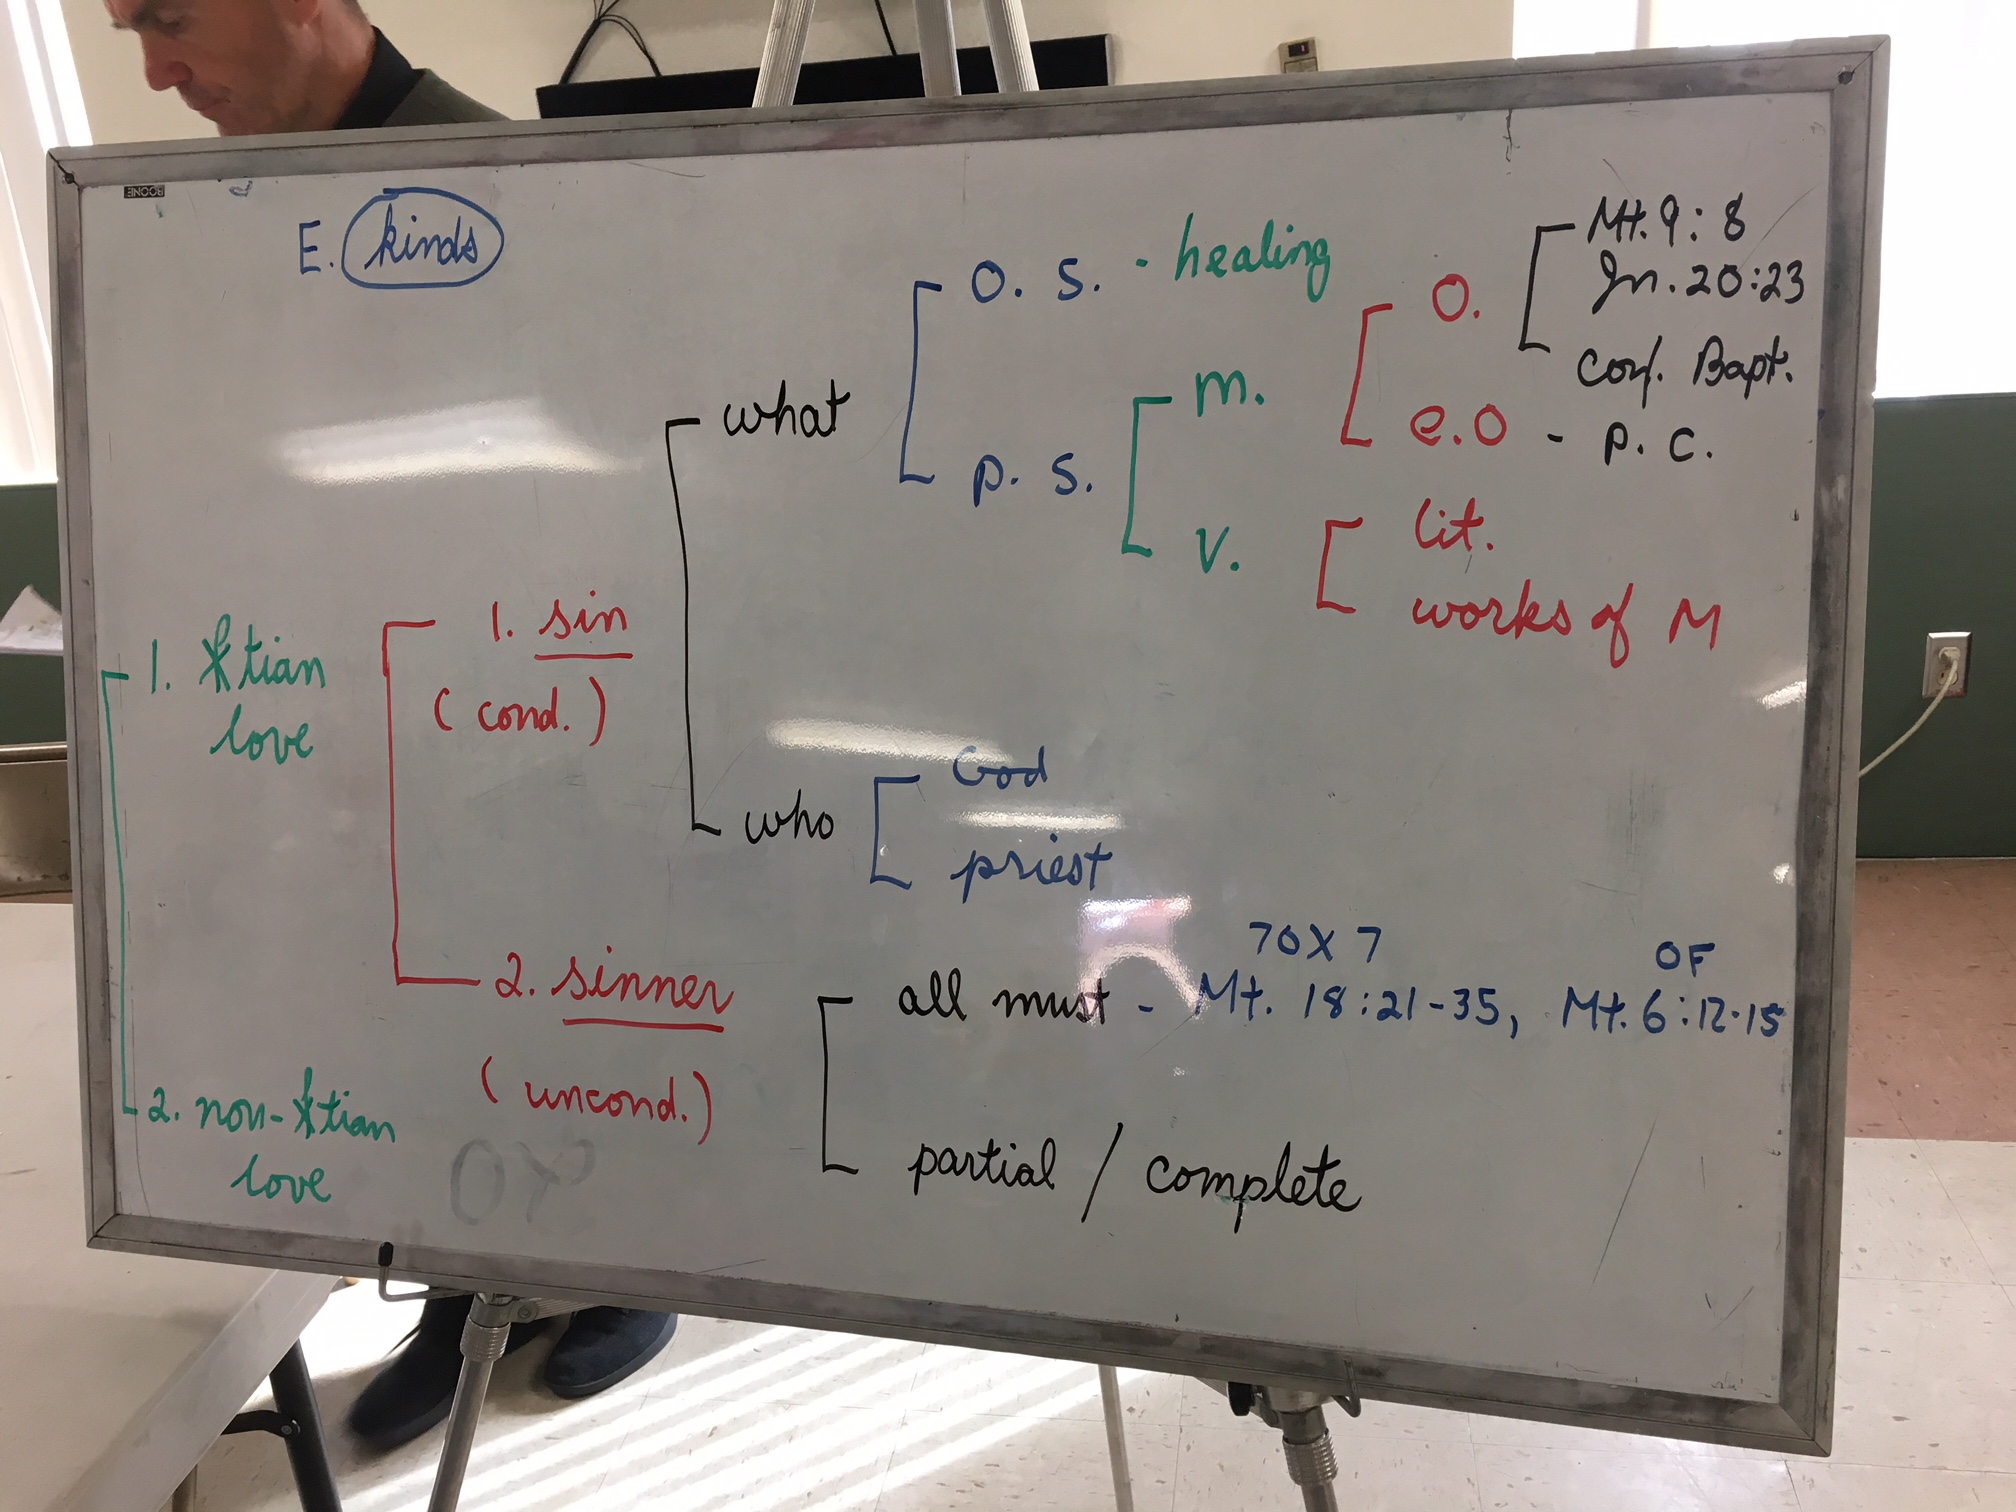 E. kinds
O. S. - healing
O.
Mt. 9:8
Jn. 20:23
Conf. Bapt.
what
m.
e.O - P. C.
P. S.
V.
lit.
works of M
1. sin
(cond.)
1. Xtian
love
who
God
priest
2. sinner
(uncond.)
70X7
OF
all must - Mt. 18:21-35, Mt. 6:12-15
2. non-Xtian
love
partial / complete
BOONE